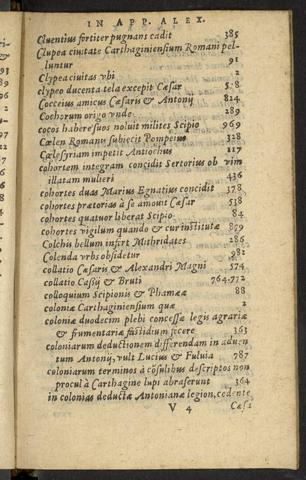 IN APP. ALEX.
Cluentius fortiter pugnans cadit 385
Clupea ciuitate Carthaginiensium Romani pel-
luntur 91
Clypea ciuitas vbi 2
clypeo ducenta tela excepit Cæsar 528
Cocceius amicus Cæsaris & Antonij 824
Cochorum origo vnde 289
cocos habere suos noluit milites Scipio 969
Cœlen Romanu subiecit Pompeius 328
Cœlesyriam impetit Antiochus 117
cohortem integram concidit Sertorius ob vim
illatam mulieri 436
cohortes duas Marius Egnatius concidit 378
cohortes prætorias à se amouit Cæsar 538
cohortes quatuor liberat Scipio 84
cohortes vigilum quando & cur institutæ 879
Colchis bellum infert Mithridates 286
Colenda vrbs obsidetur 981
collatio Cæsaris & Alexandri Magni 574
collatio Cassij & Bruti 764,772
colloquium Scipionis & Phameæ 88
coloniæ Carthaginiensium quæ 2
coloniæ duodecim plebi concessæ legis agrariæ
& frumentariæ fastidium fecere 363
coloniarum deductionem differendam in aduen
tum Antonij, vult Lucius & Fuluia 787
coloniarum terminos à cōsulibus descriptos non
procul à Carthagine lupi abraserunt 364
in colonias deductæ Antonianæ legion, cedente
V 4 Cæsa